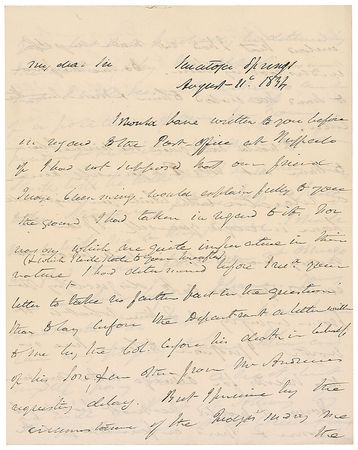 My dear Sir Saratoga Springs
August 11th 1834
I would have written to you before
in regard to the Post-Office at Buffalo
if I had not supposed that our friend
Judge would explain fully to you
the ground I had taken in regard to it. For
reasons which are quite imperative in their
(& which I will state to you)
nature I had determined before I recd your
letter to take no farther part in the question
than to lay before the Department a letter written
to me by the Col. before his death in behalf
of his Son & an other from Mr Andrews
requesting delay. But I perceive by the
circumstance of the Judges me
the